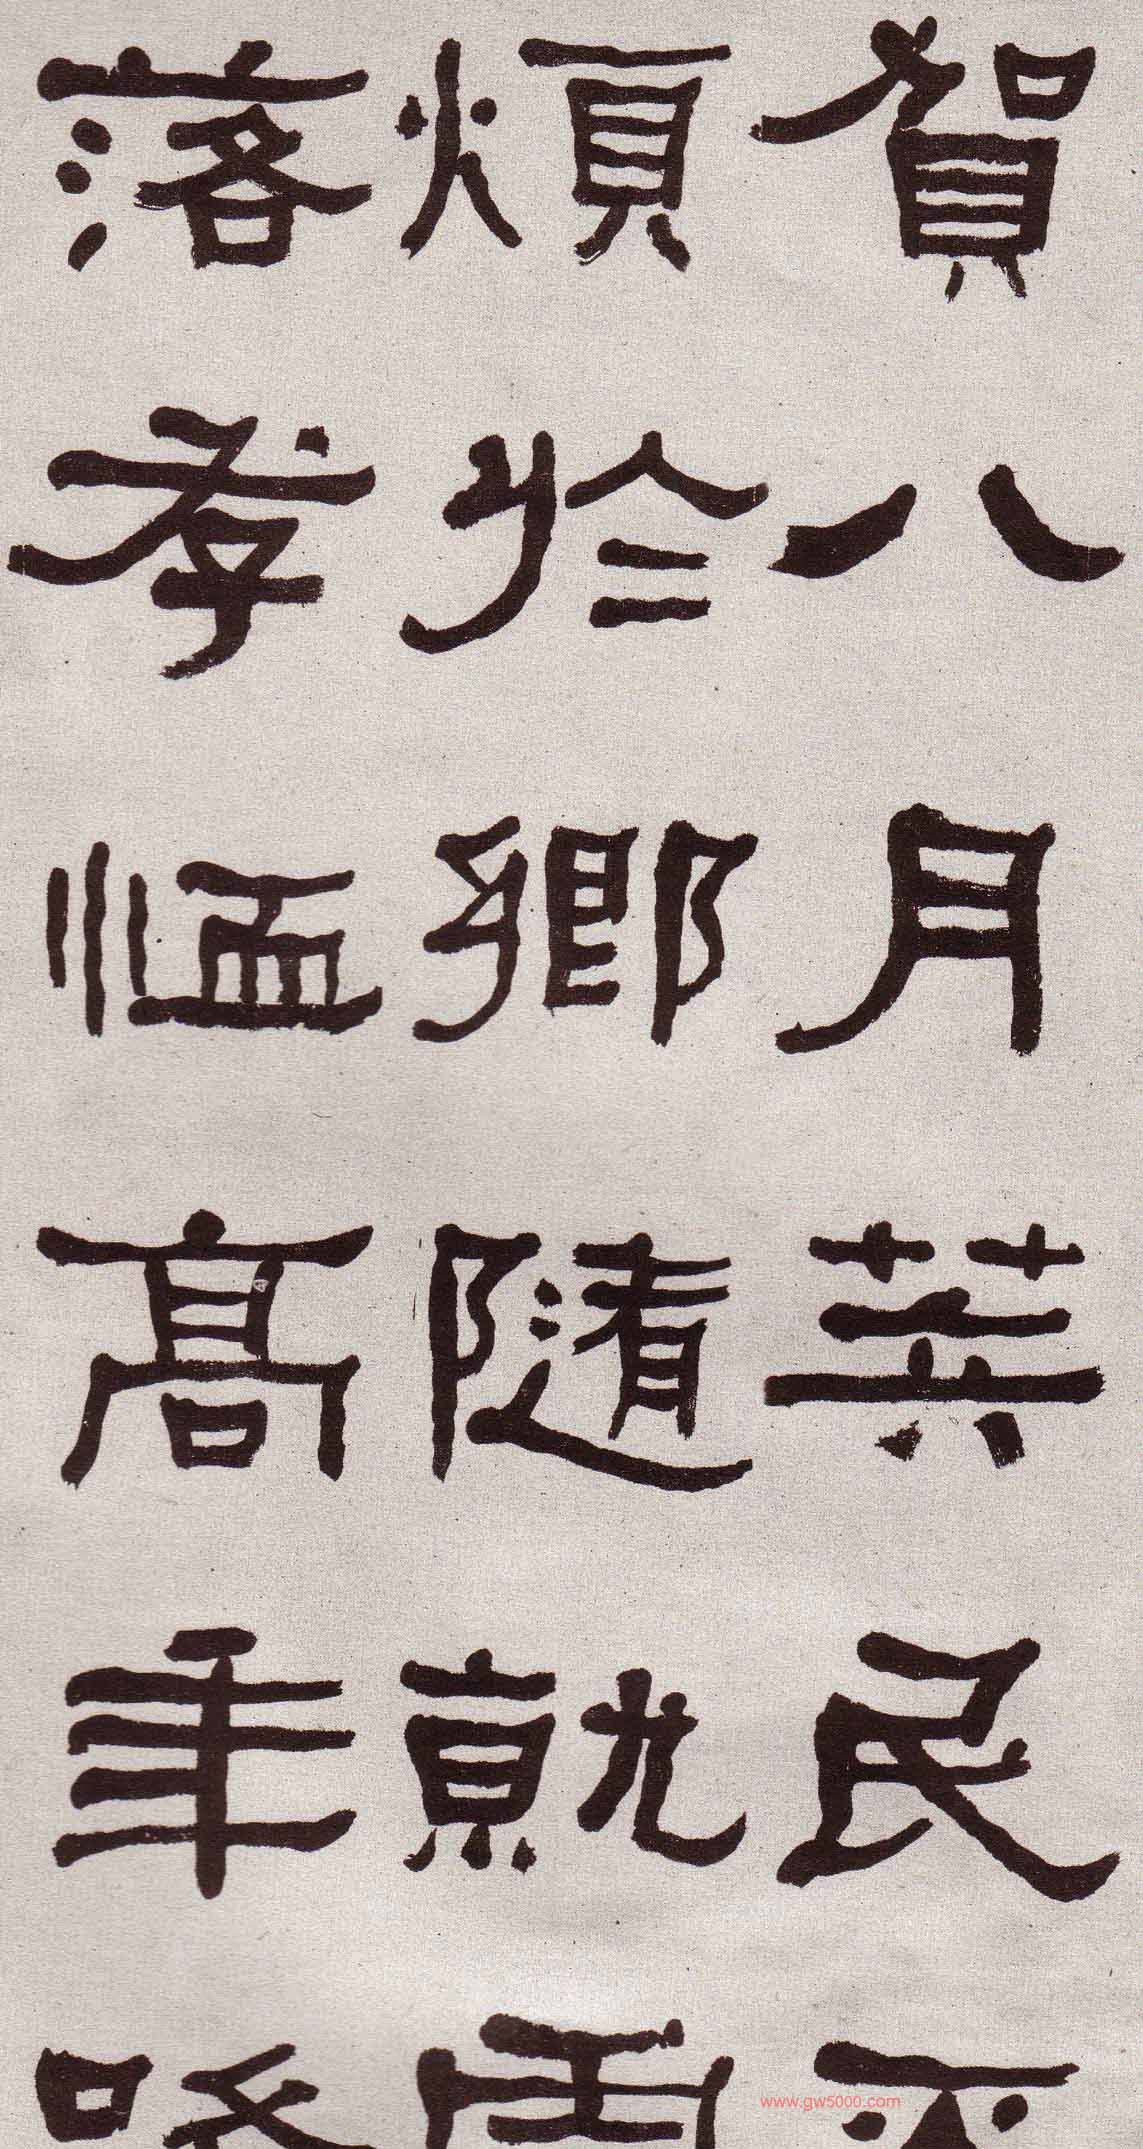 賀八月筭民不
煩於鄉隨就虛
落存恤高年路
www.gw5000.com